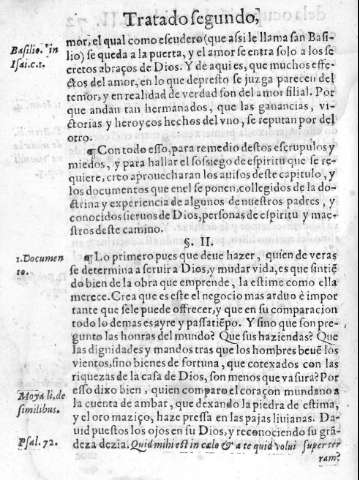 Tratado segundo,
Basilio. in
Isai.c.1.
mor, el qual como escudero (que assi le llama san Basi-
lio) se queda a la puerta, y el amor se entra solo a los se
cretos abraços de Dios. Y de aqui es, que muchos effe-
ctos del amor, en lo que depresto se juzga parecen del
temor, y en realidad de verdad son del amor filial. Por
que andan tan hermanados, que las ganancias, vi-
ctorias y heroycos hechos del vno, se reputan por del
otro.
¶ Con todo esso, para remedio destos escrupulos y
miedos, y para hallar el sossiego de espiritu que se re-
quiere, creo aprouecharan los auisos deste capitulo, y
los documentos que en el se ponen, collegidos de la do-
ctrina y experiencia de algunos de nuestros padres, y
conocidos sieruos de Dios, personas de espiritu y mae-
stros deste camino.
§. II.
1. Documen
to.
¶ Lo primero pues que deue hazer, quien de veras
se determina a seruir a Dios, y mudar vida, es que sintiẽ
do bien de la obra que emprende, la estime como ella
merece. Crea que es este el negocio mas arduo è impor
tante que se le puede offrecer, y que en su comparacion
todo lo demas es ayre y passatiẽpo. Y sino que son pre-
gunto las honras del mundo? Que sus haziendas? Que
las dignidades y mandos tras que los hombres beuẽ los
vientos, sino bienes de fortuna, que cotexados con las
riquezas de la casa de Dios, son menos que vasura? Por
Moya li. de
similibus.
esso dixo bien, quien comparo el coraçon mundano a
la cuenta de ambar, que dexando la piedra de estima,
y el oro maziço, haze pressa en las pajas liuianas. Da-
uid puestos los ojos en su Dios, y reconociendo su grã
Psal. 72.
deza dezia. Quid mihi est in cælo & a te quid volui super ter
ram?